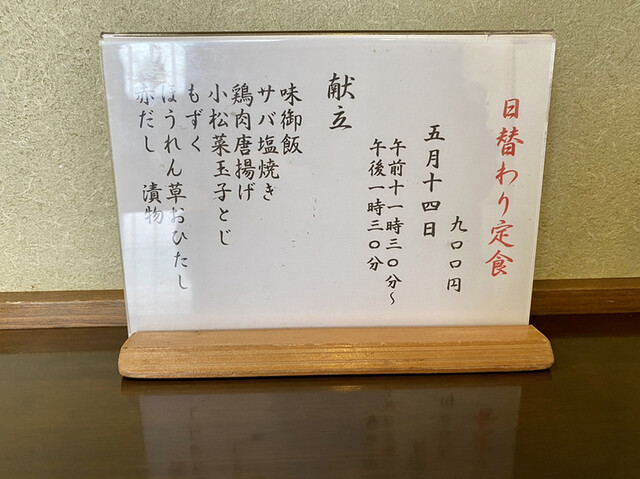 日替わり定食
九〇〇円
五月十四日
午前十一時三〇分～
午後一時三〇分
献立
味御飯
サバ塩焼き
鶏肉唐揚げ
小松菜玉子とじ
もずく
ほうれん草おひたし
赤だし 漬物